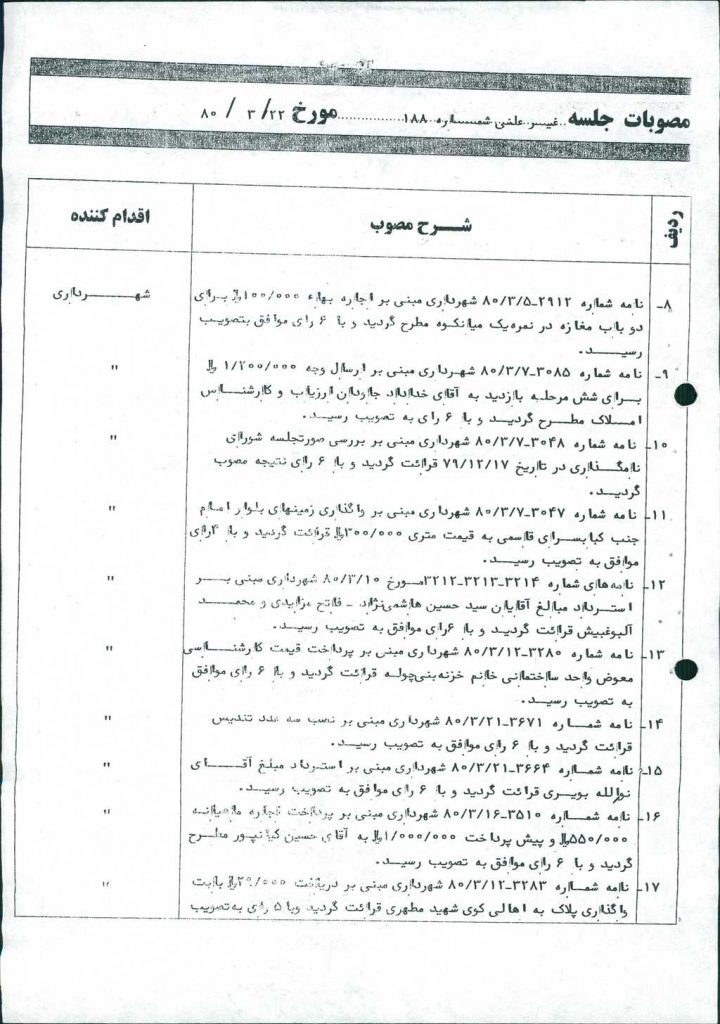 مصوبات جلسه ..غیر علنی شماره ۱۸۸...............مورخ ۲۲/ ۳ / ۸۰
ردیف شرح مصوب اقدام کننده
۸- نامه شماره ۲۹۱۲-۸۰/۳/۵ شهرداری مبنی بر اجاره بهاء ۱۰۰/۰۰۰﷼ برای شهرداری
دو باب مغازه در نمره‌یک میانکوه مطرح گردید و با ۶ رای موافق بتصویب
رسید.
۹- نامه شماره ۳۰۸۵-۸۰/۳/۷ شهرداری مبنی بر ارسال وجه ۱/۲۰۰/۰۰۰ ﷼ "
برای شش مرحله بازدید به آقای خداداد جاودان ارزیاب و کارشناس
املاک مطرح گردید و با ۶ رای به تصویب رسید.
۱۰- نامه شماره ۳۰۴۸-۸۰/۳/۷ شهرداری مبنی بر بررسی صورتجلسه شورای "
نامگذاری در تاریخ ۷۹/۱۲/۱۷ قرائت گردید و با ۶ رای نتیجه مصوب
گردید.
۱۱- نامه شماره ۳۰۴۷-۸۰/۳/۷ شهرداری مبنی بر واگذاری زمینهای بلوار امام "
جنب کبابسرای قاسمی به قیمت متری ۳۰۰/۰۰۰﷼ قرائت گردید و با ۴رای
موافق به تصویب رسید.
۱۲- نامه‌های شماره ۳۲۱۴-۳۲۱۳-۳۲۱۲مورخ ۸۰/۳/۱۰ شهرداری مبنی بر "
استرداد مبالغ آقایان سید حسین هاشمی‌نژاد - فاتح مزایدی و محمد
آلبوغبیش قرائت گردید و با ۶رای موافق به تصویب رسید.
۱۳- نامه شماره ۳۲۸۰-۸۰/۳/۱۲ شهرداری مبنی بر پرداخت قیمت کارشناسی "
معوض واحد ساختمانی خانم خزنه‌بنی‌چوله قرائت گردید و با ۶ رای موافق
به تصویب رسید.
۱۴- نامه شماره ۳۶۷۱-۸۰/۳/۲۱ شهرداری مبنی بر نصب سه عدد تندیس "
قرائت گردید و با ۶ رای موافق به تصویب رسید.
۱۵- نامه شماره ۳۶۶۴-۸۰/۳/۲۱ شهرداری مبنی بر استرداد مبلغ آقای "
نورالله بویری قرائت گردید و با ۶ رای موافق به تصویب رسید.
۱۶- نامه شماره ۳۵۱۰-۸۰/۳/۱۶ شهرداری مبنی بر پرداخت اجاره ماهیانه "
۵۵۰/۰۰۰﷼ و پیش پرداخت ۱/۰۰۰/۰۰۰﷼ به آقای حسین کیانپور مطرح
گردید و با ۶ رای موافق به تصویب رسید.
۱۷- نامه شماره ۳۲۸۳-۸۰/۳/۱۲ شهرداری مبنی بر دریافت ۲۹/۰۰۰﷼ بابت "
واگذاری پلاک به اهالی کوی شهید مطهری قرائت گردید وبا ۵ رای به‌تصویب